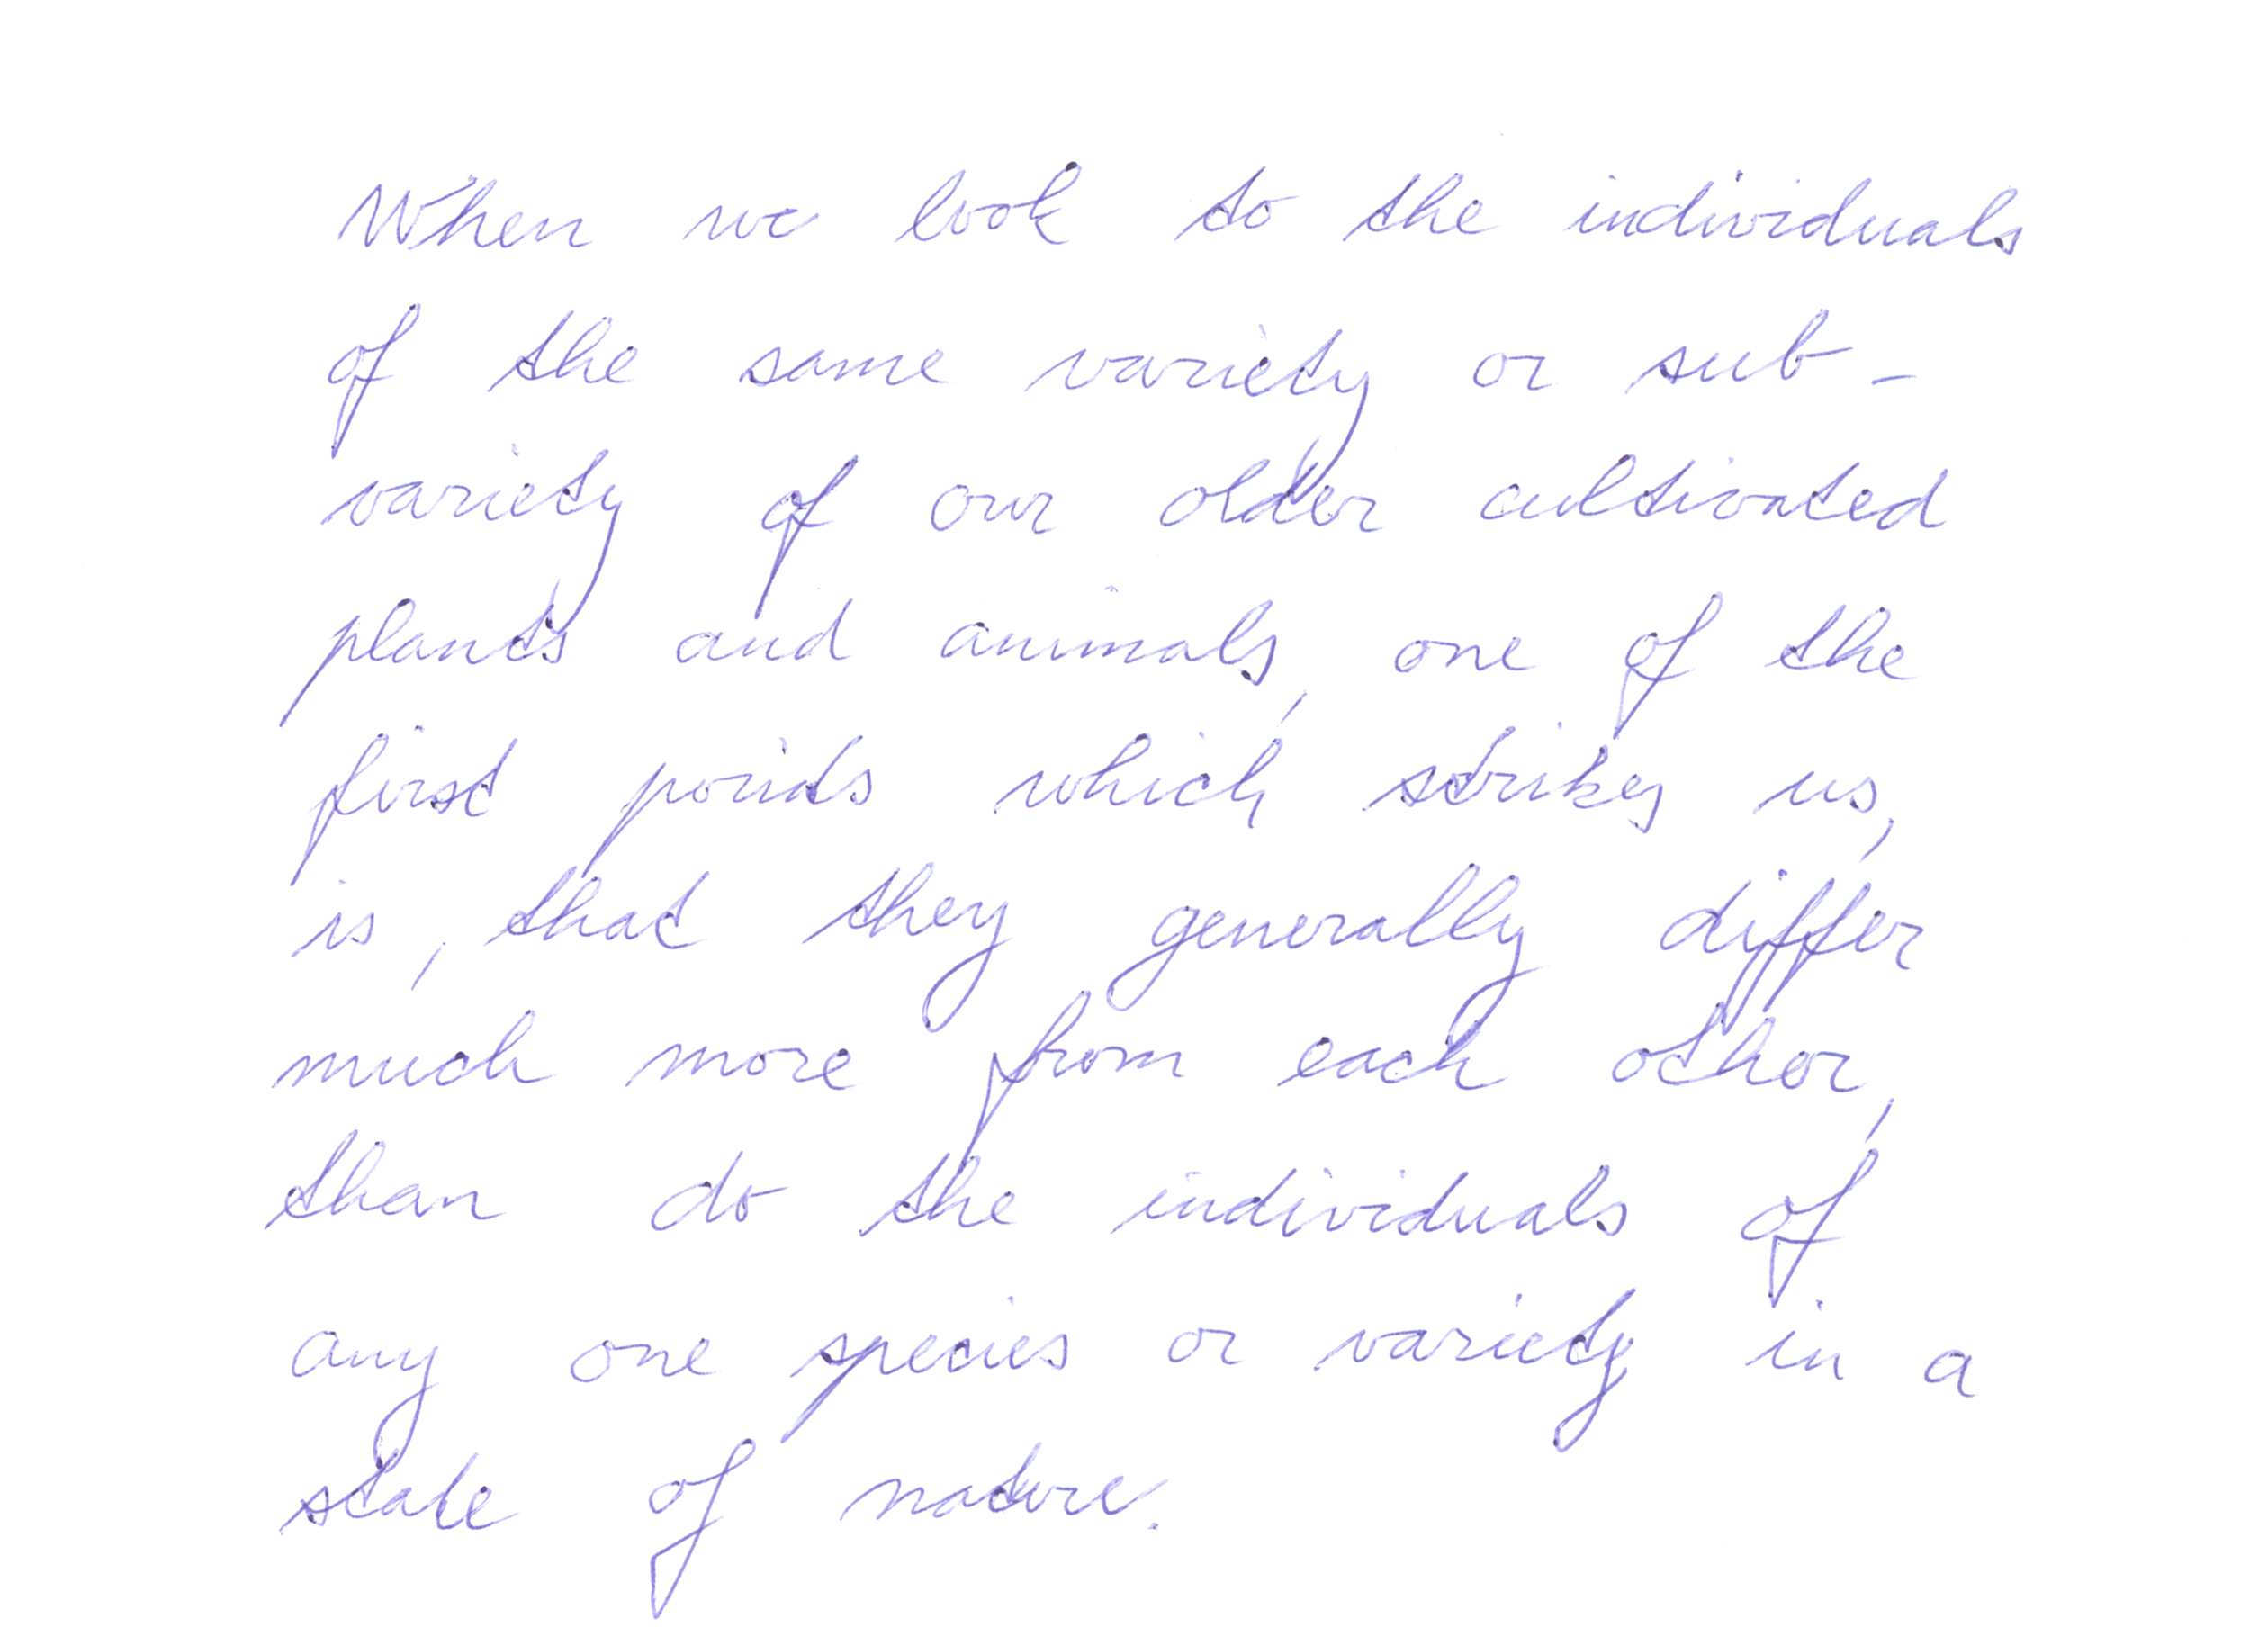 When we look to the individuals
of the same variety or sub-
variety of our older cultivated
plants and animals, one of the
first points which strikes us,
is, that they generally differ
much more from each other,
than do the individuals of
any one species or variety in a
state of nature.